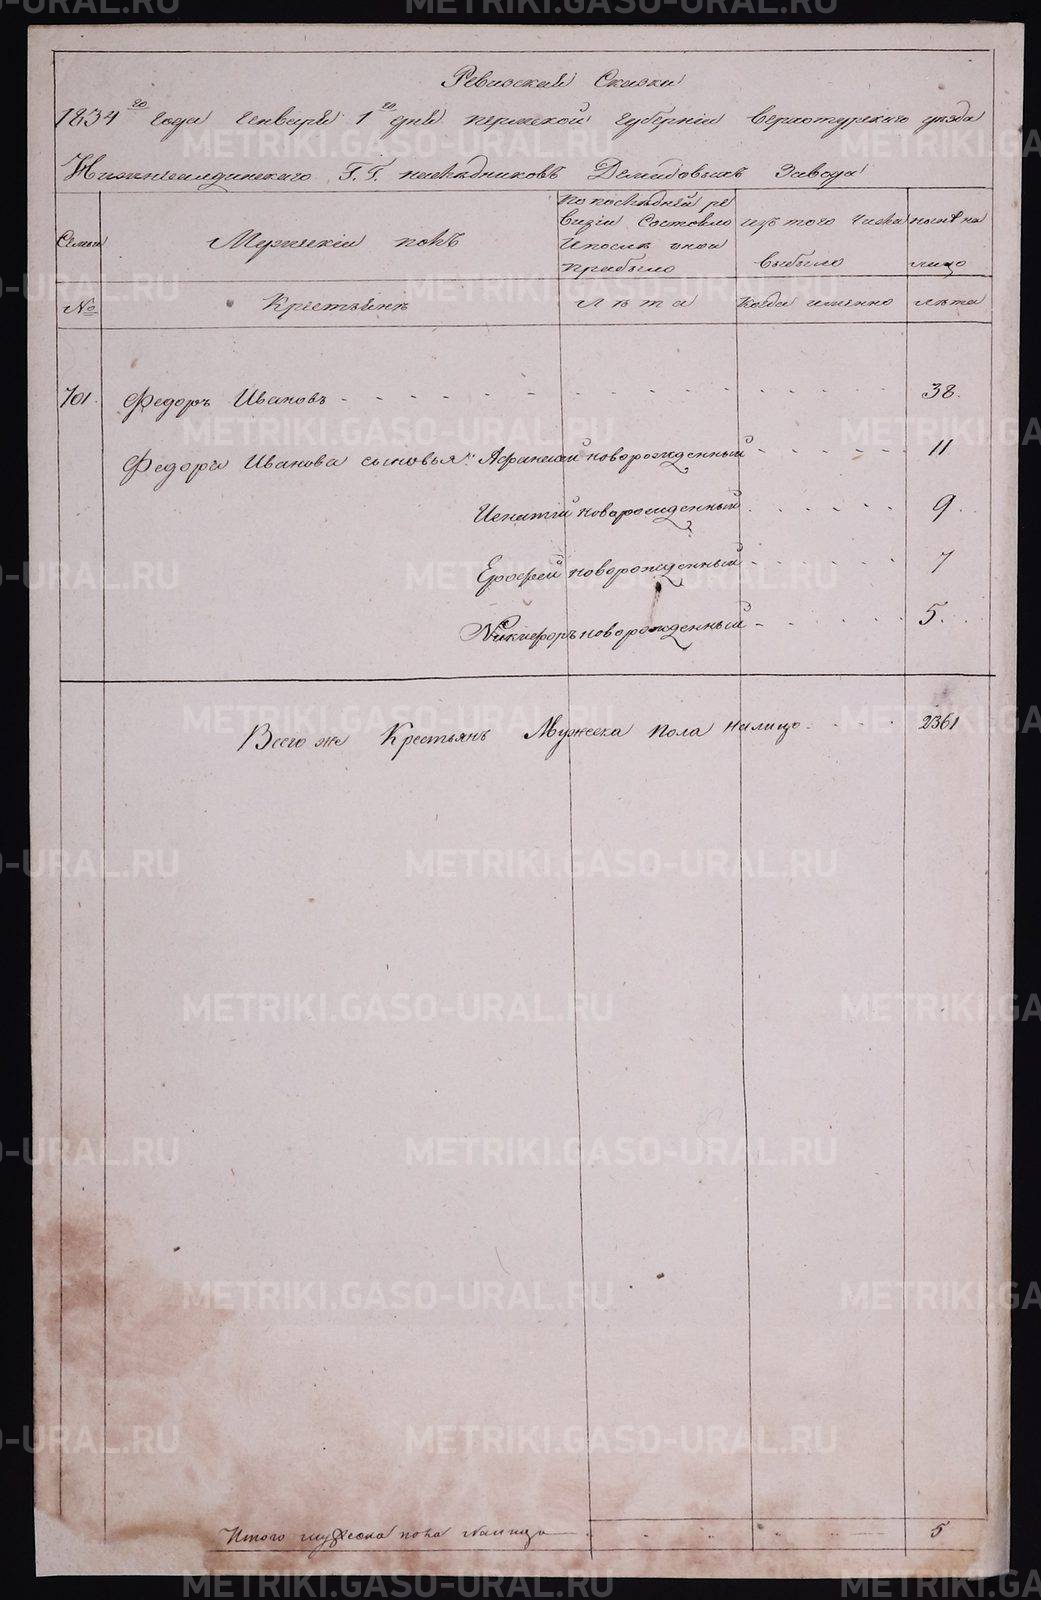 Ревизская Сказка
1834го года Генваря 1го дня пермской Губерніи Верхотурскаго уезда
Нижнесалдинскаго Г.Г. наследниковъ Демидовыхъ Завода
Семьи
Мужескій полъ
По последней ре
визіи Состояло
и после оной
прибыло
изъ того Числа
выбыло
ныне на
лицо
№
Крестьяне
лета
Когда именно
лета
701. Федоръ Ивановъ 38.
Федора Иванова сыновья: Афанасій новорожденный 11
Игнатій новорожденный 9.
Ерофей новорожденный 7
Никифоръ новорожденный 5.
Всего же Крестьянъ Мужеска пола налицо 2361
Итого мужеска пола налицо 5
METRIKI.GASO-URAL.RU